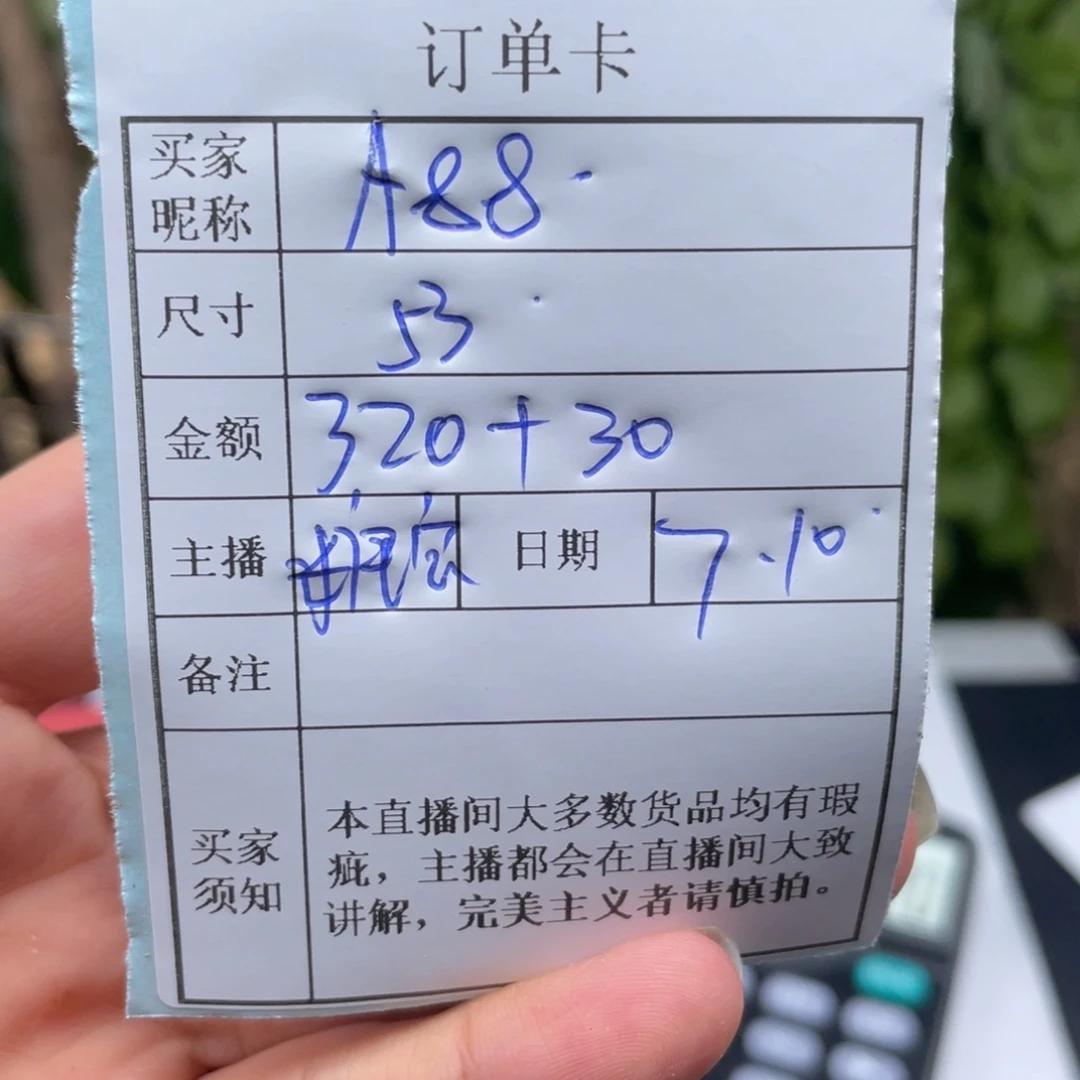 订单卡
买家昵称 A88
尺寸 53
金额 320+30
主播 日期 7.10
备注
买家须知
本直播间大多数货品均有瑕
疵，主播都会在直播间大致
讲解，完美主义者请慎拍。